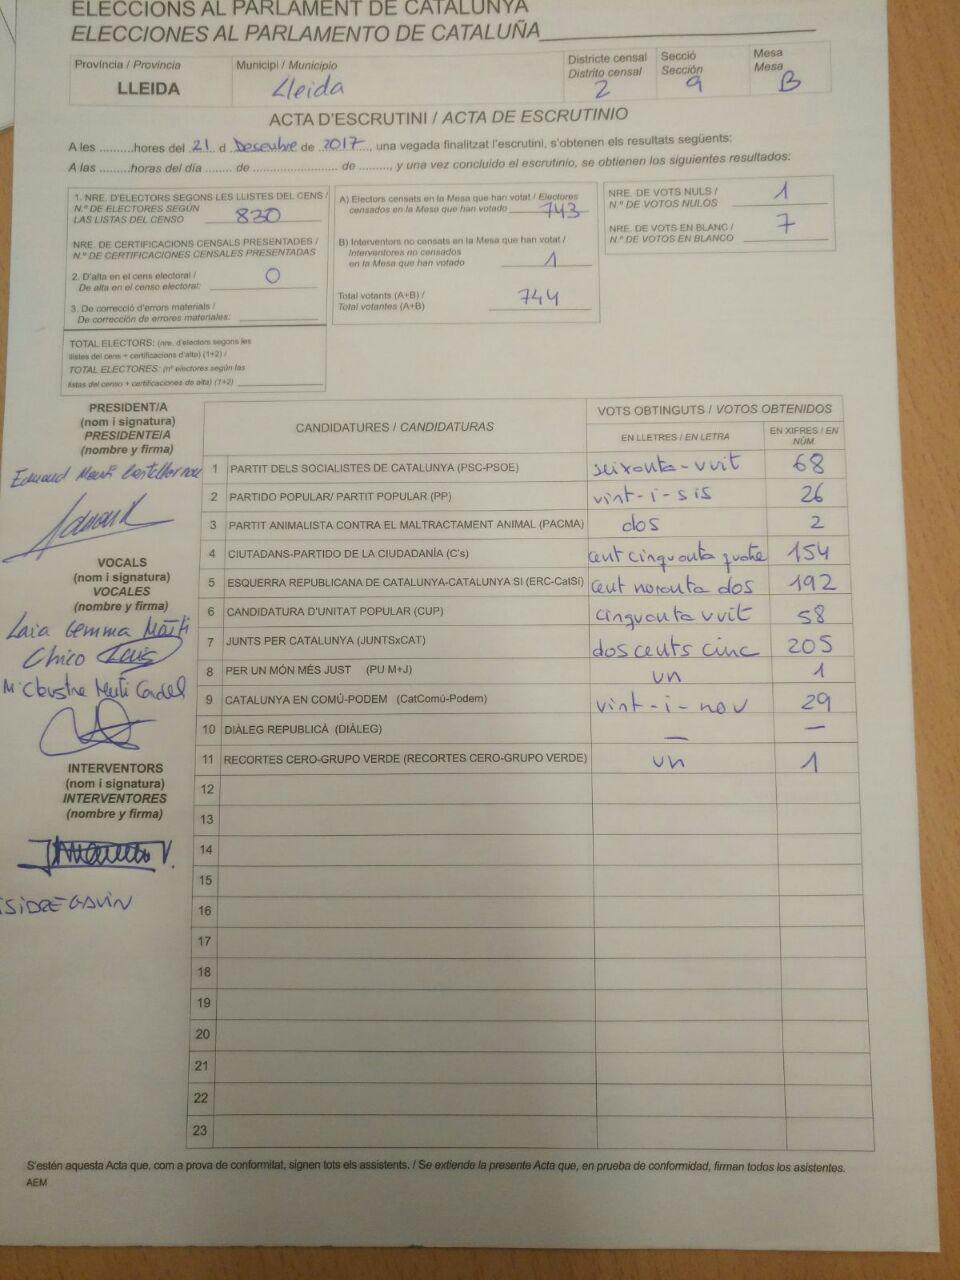 ELECCIONS AL PARLAMENT DE CATALUNYA
ELECCIONES AL PARLAMENTO DE CATALUÑA
Província / Provincia
LLEIDA
Municipi / Municipio
Lleida
Districte censal
Distrito censal
2
Secció
Sección
9
Mesa
Mesa
B
ACTA D'ESCRUTINI / ACTA DE ESCRUTINIO
A les ..........hores del 21 d Desembre de 2017, una vegada finalitzat l'escrutini, s'obtenen els resultats següents:
A las ..........horas del día ........ de .......................... de .........., y una vez concluido el escrutinio, se obtienen los siguientes resultados:
1. NRE. D'ELECTORS SEGONS LES LLISTES DEL CENS /
N.º DE ELECTORES SEGÚN
LAS LISTAS DEL CENSO 830
NRE. DE CERTIFICACIONS CENSALS PRESENTADES /
N.º DE CERTIFICACIONES CENSALES PRESENTADAS
2. D'alta en el cens electoral /
De alta en el censo electoral: 0
3. De correcció d'errors materials /
De corrección de errores materiales:
TOTAL ELECTORS: (nre. d'electors segons les
llistes del cens + certificacions d'alta) (1+2) /
TOTAL ELECTORES: (nº electores según las
listas del censo + certificaciones de alta) (1+2)
A) Electors censats en la Mesa que han votat / Electores
censados en la Mesa que han votado 743
B) Interventors no censats en la Mesa que han votat /
Interventores no censados
en la Mesa que han votado 1
Total votants (A+B) /
Total votantes (A+B) 744
NRE. DE VOTS NULS /
N.º DE VOTOS NULOS 1
NRE. DE VOTS EN BLANC /
N.º DE VOTOS EN BLANCO 7
PRESIDENT/A
(nom i signatura)
PRESIDENTE/A
(nombre y firma)
VOCALS
(nom i signatura)
VOCALES
(nombre y firma)
Laia Gemma Martí
Chico
INTERVENTORS
(nom i signatura)
INTERVENTORES
(nombre y firma)
ISIDRE GAVÍN
CANDIDATURES / CANDIDATURAS
VOTS OBTINGUTS / VOTOS OBTENIDOS
EN LLETRES / EN LETRA
EN XIFRES / EN NÚM.
1 PARTIT DELS SOCIALISTES DE CATALUNYA (PSC-PSOE) seixanta-vuit 68
2 PARTIDO POPULAR/ PARTIT POPULAR (PP) vint-i-sis 26
3 PARTIT ANIMALISTA CONTRA EL MALTRACTAMENT ANIMAL (PACMA) dos 2
4 CIUTADANS-PARTIDO DE LA CIUDADANÍA (C's) cent cinquanta quatre 154
5 ESQUERRA REPUBLICANA DE CATALUNYA-CATALUNYA SÍ (ERC-CatSí) cent noranta dos 192
6 CANDIDATURA D'UNITAT POPULAR (CUP) cinquanta vuit 58
7 JUNTS PER CATALUNYA (JUNTSxCAT) dos cents cinc 205
8 PER UN MÓN MÉS JUST (PU M+J) un 1
9 CATALUNYA EN COMÚ-PODEM (CatComú-Podem) vint-i-nou 29
10 DIÀLEG REPUBLICÀ (DIÀLEG) — —
11 RECORTES CERO-GRUPO VERDE (RECORTES CERO-GRUPO VERDE) un 1
12
13
14
15
16
17
18
19
20
21
22
23
S'estén aquesta Acta que, com a prova de conformitat, signen tots els assistents. / Se extiende la presente Acta que, en prueba de conformidad, firman todos los asistentes.
AEM